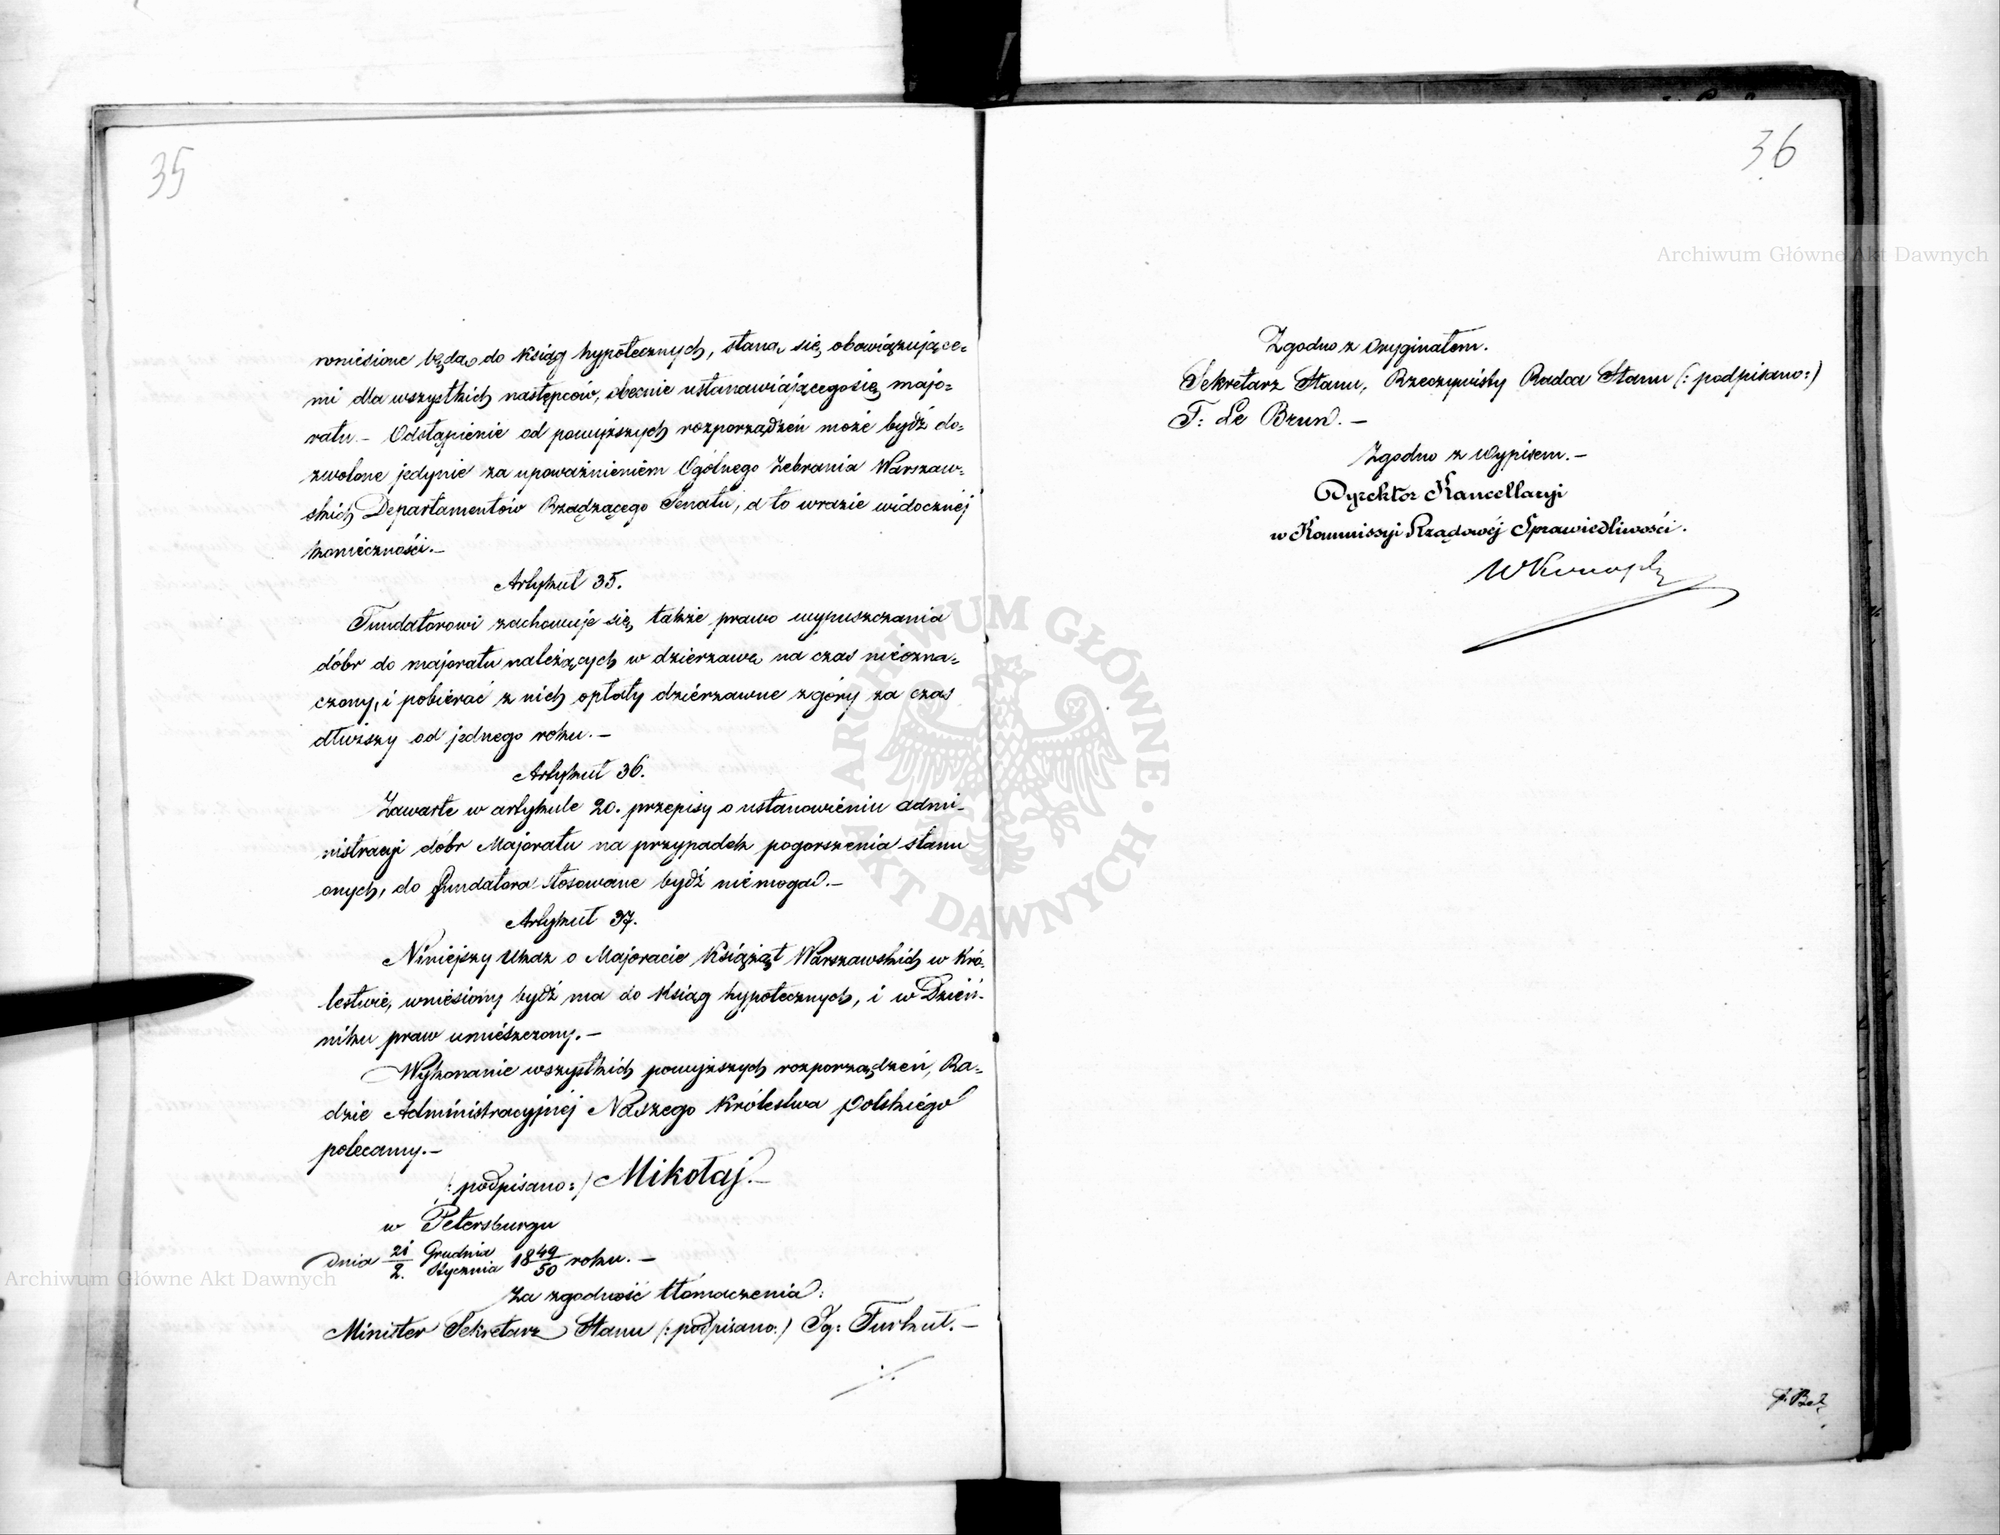 35
wniesione będą do ksiąg hypotecznych, staną się obowiązujące-
mi dla wszystkich następców, obecnie ustanawiającego się majo-
ratu. – Odstąpienie od powyższych rozporządzeń może bydź do-
zwolone jedynie za upoważnieniem Ogólnego Zebrania Warszaw-
skich Departamentów Rządzącego Senatu, a to wrazie widocznéj
koniéczności. –
Artykuł 35.
Fundatorowi zachowuje się także prawo wypuszczania
dóbr do majoratu należących w dzierzawę na czas nieozna-
czony, i pobierać z nich opłaty dziérzawne z góry za czas
dłuższy od jednego roku. –
Artykuł 36.
Zawarte w artykule 20. przepisy o ustanowiéniu admi-
nistracyi dóbr Majoratu na przypadek pogorszenia stanu
onych, do fundatora stosowane bydź niémogą. –
Artykuł 37.
Niniejszy Ukaz o Majoracie Książąt Warszawskich w Kró-
lestwie, wniesiony bydź ma do Ksiąg hypotecznych, i w Dzień-
niku praw umiészczony. –
Wykonanie wszystkich powyższych rozporządzeń, Ra-
dzie Administracyjnéj Naszego Królestwa Polskiégo
polecamy. –
(: podpisano :) Mikołaj. –
w Petersburgu
dnia 21/2. Grudnia/Stycznia 18 49/50 roku. –
Za zgodność tłómaczenia:
Minister Sekretarz Stanu (: podpisano :) Ig: Turkuł. –
./.
36
Zgodno z Oryginałem.
Sekretarz Stanu, Rzeczywisty Radca Stanu (: podpisano :)
T: Le Brun. –
Zgodno z Wypisem. –
Dyrektor Kancellaryi
w Kommissyi Rządowéj Sprawiedliwości.
Archiwum Główne Akt Dawnych
Archiwum Główne Akt Dawnych
ARCHIWUM GŁÓWNE · AKT DAWNYCH ·